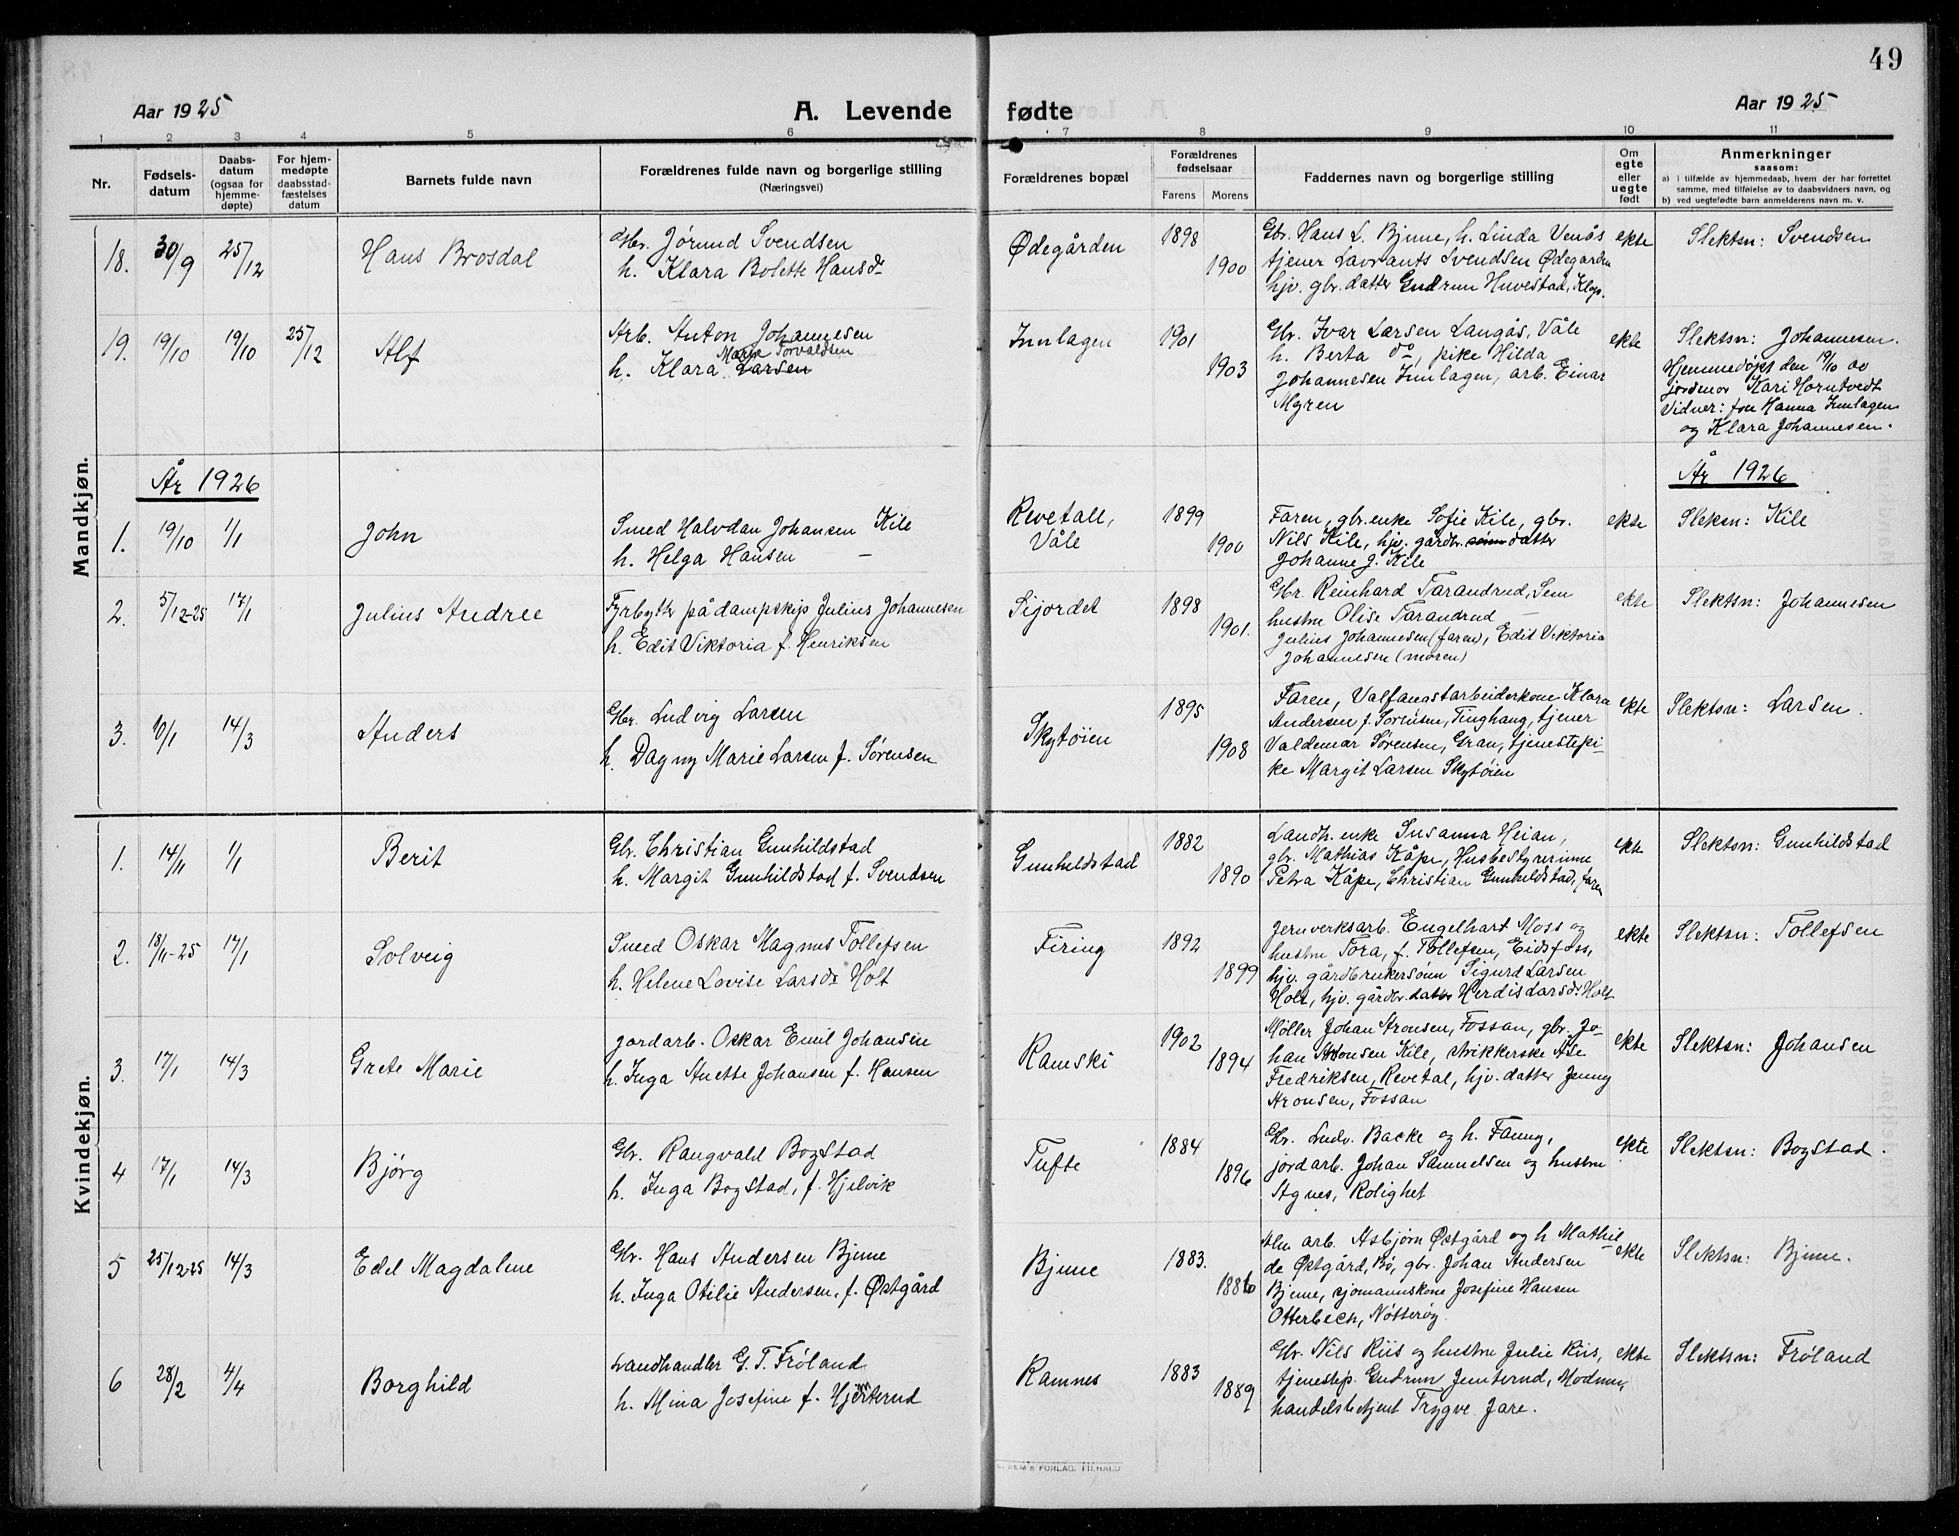 49
Aar 1925
A. Levende fødte
Aar 1925
1 2 3 4 5 6 7 8 9 10 11
Nr.
Fødsels-
datum
Daabs-
datum
(ogsaa for
hjemme-
døpte)
For hjem-
medøpte
daabsstad-
fæstelses
datum
Barnets fulde navn
Forældrenes fulde navn og borgerlige stilling
(Næringsvei)
Forældrenes bopæl
Forældrenes
fødselsaar
Farens Morens
Faddernes navn og borgerlige stilling
Om
egte
eller
uegte
født
Anmerkninger
saasom:
a) i tilfælde av hjemmedaab, hvem der har forrettet
samme, med tilføielse av to daabsvidners navn, og
b) ved uegtefødte barn anmelderens navn m. v.
Mandkjøn.
18. 30/9 25/12 Hans Brosdal
Gbr. Jørund Svendsen
h. Klara Bolette Hansdr
Ødegården 1898 1900
Gbr. Hans L. Bjune, h. Linda Venås
tjener Lavrants Svendsen Ødegården
hjv. gbr. datter Gudrun Huvestad, Klop.
ekte Slektsn: Svendsen
19. 19/10 19/10 25/12 Alf
Arb. Anton Johannesen
Marie Torvaldsen
h. Klara Larsen
Innlagen 1901 1903
Gbr. Ivar Larsen Langås, Våle
h. Berta do, pike Hilda
Johannesen Innlagen, arb. Einar
Myren
ekte Slektsn: Johannesen.
Hjemmedøpt den 19/10 av
jordmor Kari Horntvedt
Vidner: fru Hanna Innlagen
og Klara Johannesen.
År 1926
År 1926
1. 19/10 1/1 John
Smed Halvdan Johansen Kile
h. Helga Hansen —
Revetall,
Våle
1899 1900
Faren, gbr. enke Sofie Kile, gbr.
Nils Kile, hjv. gårdbr. sønn datter
Johanne J. Kile
ekte Sleksn: Kile
2. 5/12-25 17/1 Julius Andree
Fyrbøter på dampskip Julius Johannesen
h. Edit Viktoria f. Henriksen
Sijordet 1898 1901.
Gbr. Reinhard Tarandrud, Sem
hustru Olise Tarandrud —
Julius Johannesen (faren), Edit Viktoria
Johannesen (moren)
ekte Slektsn: Johannesen
3. 10/1 14/3 Anders
Gbr. Ludvig Larsen
h. Dagny Marie Larsen f. Sørensen
Skytøien 1895 1908
Faren, Valfangstarbeiderkone Klara
Andersen f. Sørensen, Tinghaug, tjener
Valdemar Sørensen, Gran, tjenestepi-
ke Margit Larsen Skytøien
ekte Slektsn: Larsen.
Kvindekjøn.
1. 14/11 1/1 Berit
Gbr. Christian Gunhildstad
h. Margit Gunhildstad f. Svendsen
Gunhildstad 1882 1890
Landh. enke Susanna Heian,
gbr. Mathias Kåpe, Husbestyrerinne
Petra Kåpe, Christian Gunhildstad, faren
ekte Slektsn: Gunhildstad
2. 18/11-25 17/1 Solveig
Smed Oskar Magnus Tollefsen
h. Helene Lovise Larsdr Holt
Firing 1892 1899
Jernverksarb. Engelhart Moss og
hustru Tora, f. Tollefsen, Eidsfoss,
hjv. gårdbrukersønn Sigurd Larsen
Holt, hjv. gårdbr. datter Herdis Larsdr Holt
ekte Slektsn: Tollefsen
3. 17/1 14/3 Grete Marie
Jordarb. Oskar Emil Johansen
h. Inga Anette Johansen f. Hansen
Ramski 1902 1894
Møller Johan Aronsen, Fossan, gbr. Jo-
han Aronsen Kile, strikkerske Ale
Fredriksen, Revetal, hjv. datter Jenny
Aronsen, Fossan
ekte Slektsn: Johansen
4 17/1 14/3 Bjørg
Gbr. Rangvald Bogstad
h. Inga Bogstad, f. Hjelvik
Tufte 1884 1896
Gbr. Ludv. Backe og h. Fanny,
jordarb. Johan Samuelsen og hustru
Agnes, Rolighet
ekte Slektsn: Bogstad.
5 25/12-25 14/3 Edel Magdalene
Gbr. Hans Andersen Bjune
h. Inga Otilie Andersen, f. Østgård
Bjune 1883. 1886
arb. Asbjørn Østgård og h Mathil-
de Østgård, Bø, gbr. Johan Andersen
Bjune, sjømannskone Josefine Hansen
Otterbech, Nøtterøy
ekte Slektsn: Bjune.
6 28/2 4/4 Borghild
Landhandler G. T. Frøland
h. Mina Josefine f. Hjerterud
Ramnes 1883 1889
Gbr. Nils Riis og hustru Julie Riis,
tjenestep. Gudrun Jemterud, Modum,
handelsbetjent Trygve Jare.
ekte Slektsn: Frøland